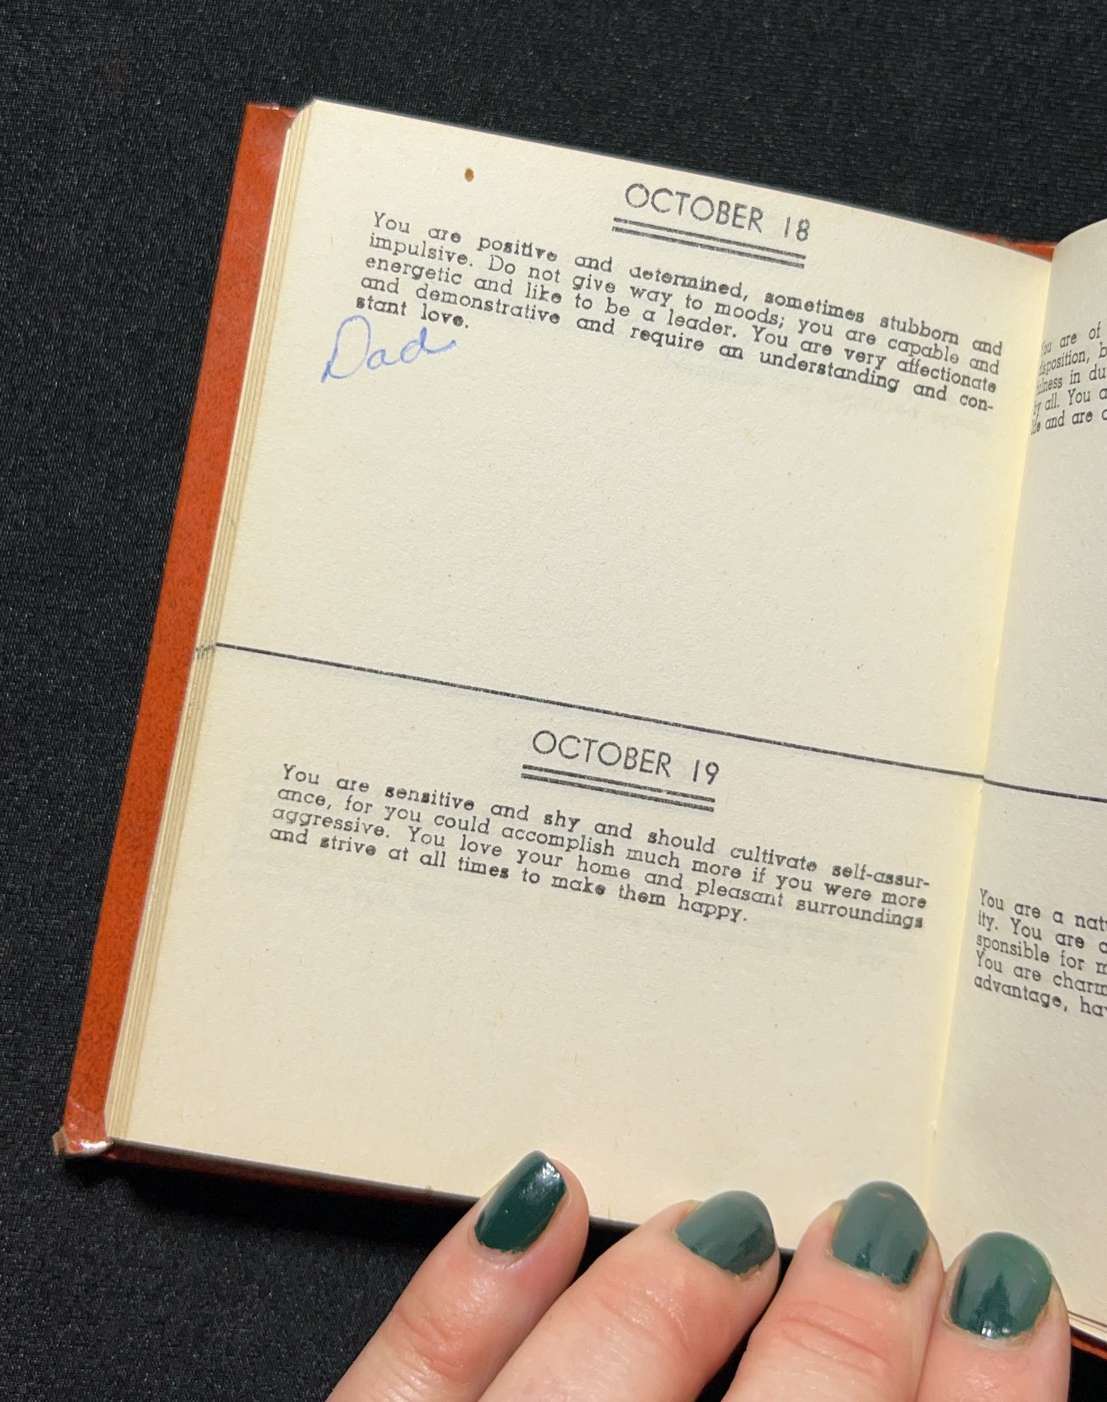 OCTOBER 18
You are positive and determined, sometimes stubborn and
impulsive. Do not give way to moods; you are capable and
energetic and like to be a leader. You are very affectionate
and demonstrative and require an understanding and con-
stant love.
Dad
OCTOBER 19
You are sensitive and shy and should cultivate self-assur-
ance, for you could accomplish much more if you were more
aggressive. You love your home and pleasant surroundings
and strive at all times to make them happy.
are of
disposition, b
in du
all. You a
and are
You are a nat
ity. You are
sponsible for m
You are charm
advantage, ha